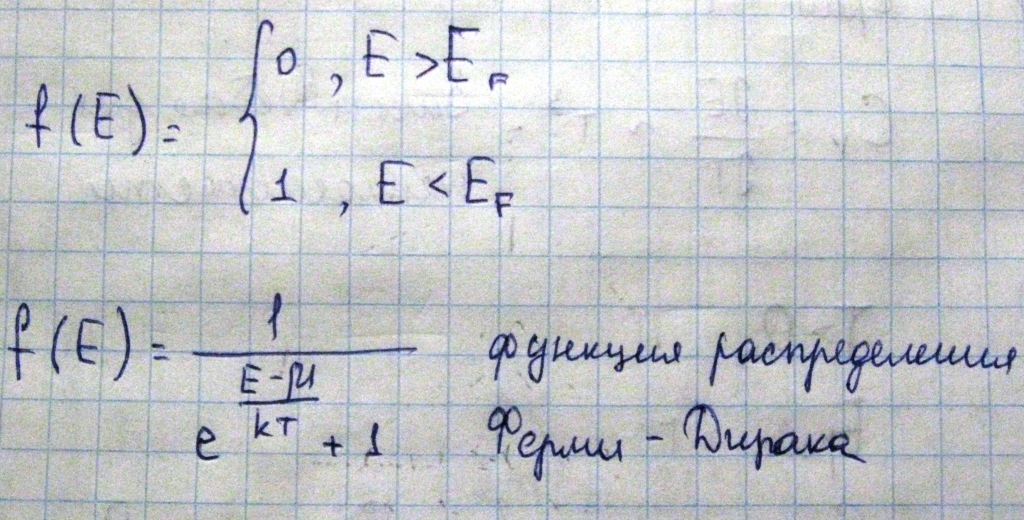 f(E) = { 0 , E > E_F
1 , E < E_F
f(E) = 1 / (e^((E-μ)/kT) + 1) функция распределения
Ферми - Дирака